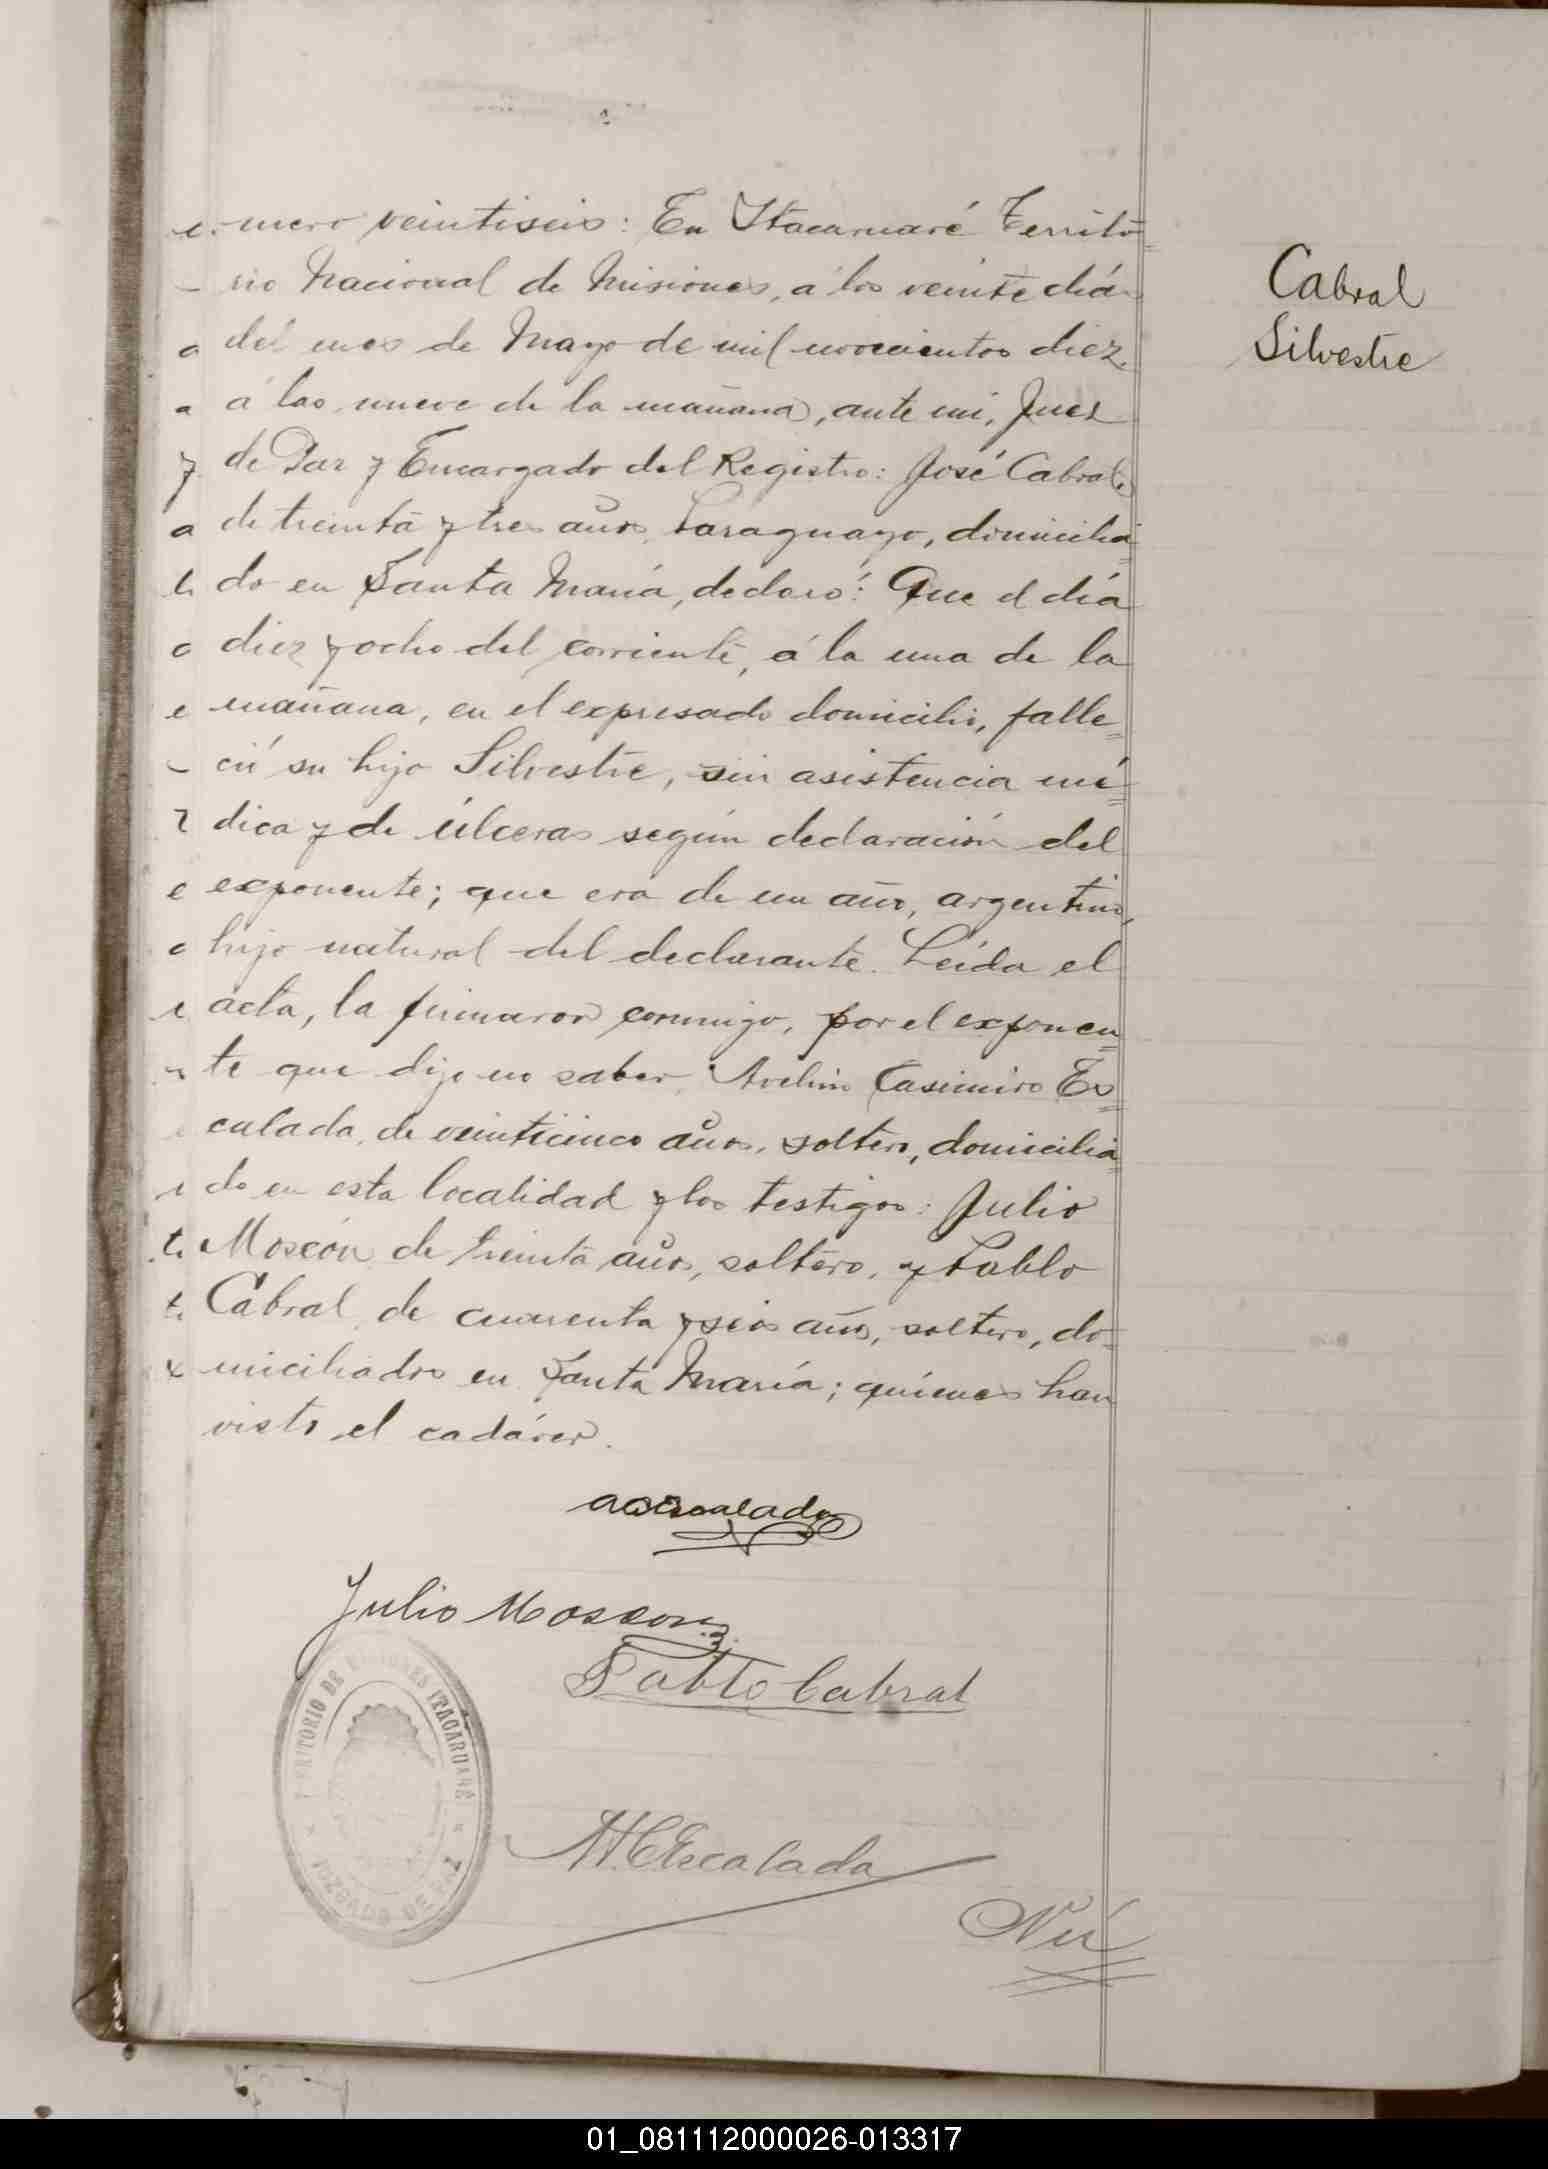 mero veintiseis: En Itacaruaré Territo=
rio Nacional de Misiones, á los veinte dias
del mes de Mayo de mil novecientos diez
á las nueve de la mañana, ante mi, Juez
de Paz y Encargado del Registro: José Cabral,
de treinta y tres años, Paraguayo, domicilia=
do en Santa María, declaró: Que el día
diez y ocho del corriente, á la una de la
mañana, en el expresado domicilio, falle=
ció su hijo Silvestre, sin asistencia mé=
dica y de úlceras según declaración del
exponente; que era de un año, argentino,
hijo natural del declarante. Leída el
acta, la firmaron conmigo, por el exponen=
te que dijo no saber, Avelino Casimiro Es=
calada, de veinticinco años, soltero, domicilia=
do en esta localidad y los testigos: Julio
Moscón, de treinta años, soltero, y Pablo
Cabral, de cuarenta y seis años, soltero, do=
miciliados en Santa María; quienes han
visto el cadáver.
Cabral
Silvestre
Julio Moscon
Pablo Cabral
Escalada
Nú
TERRITORIO DE MISIONES ITACARUARÉ
JUZGADO DE PAZ
01_081112000026-013317